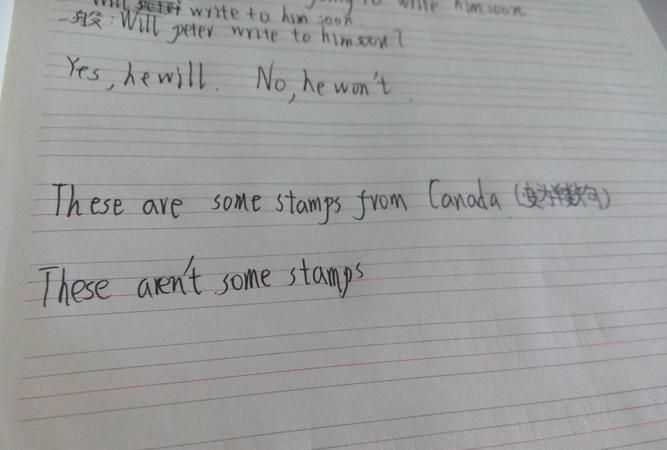 write him soon
will write to him soon
一般: Will peter write to him soon?
Yes, he will. No, he won't
These are some stamps from Canada (变为单数句)
These aren't some stamps